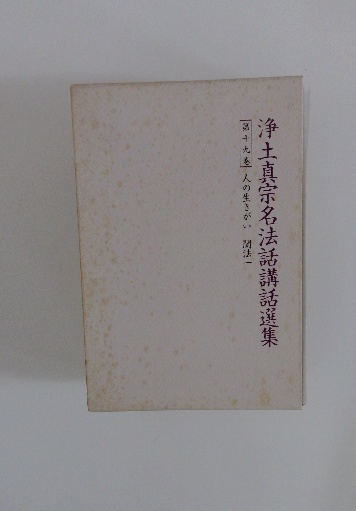 浄土真宗名法話講話選集
第十九巻 人の生きがい 聞法一